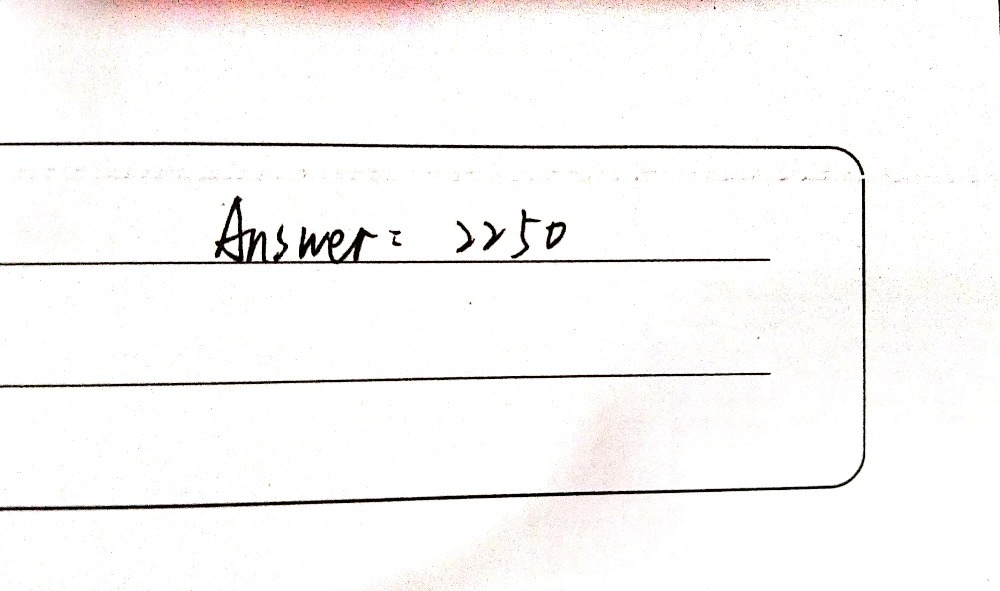 Answer: 2250